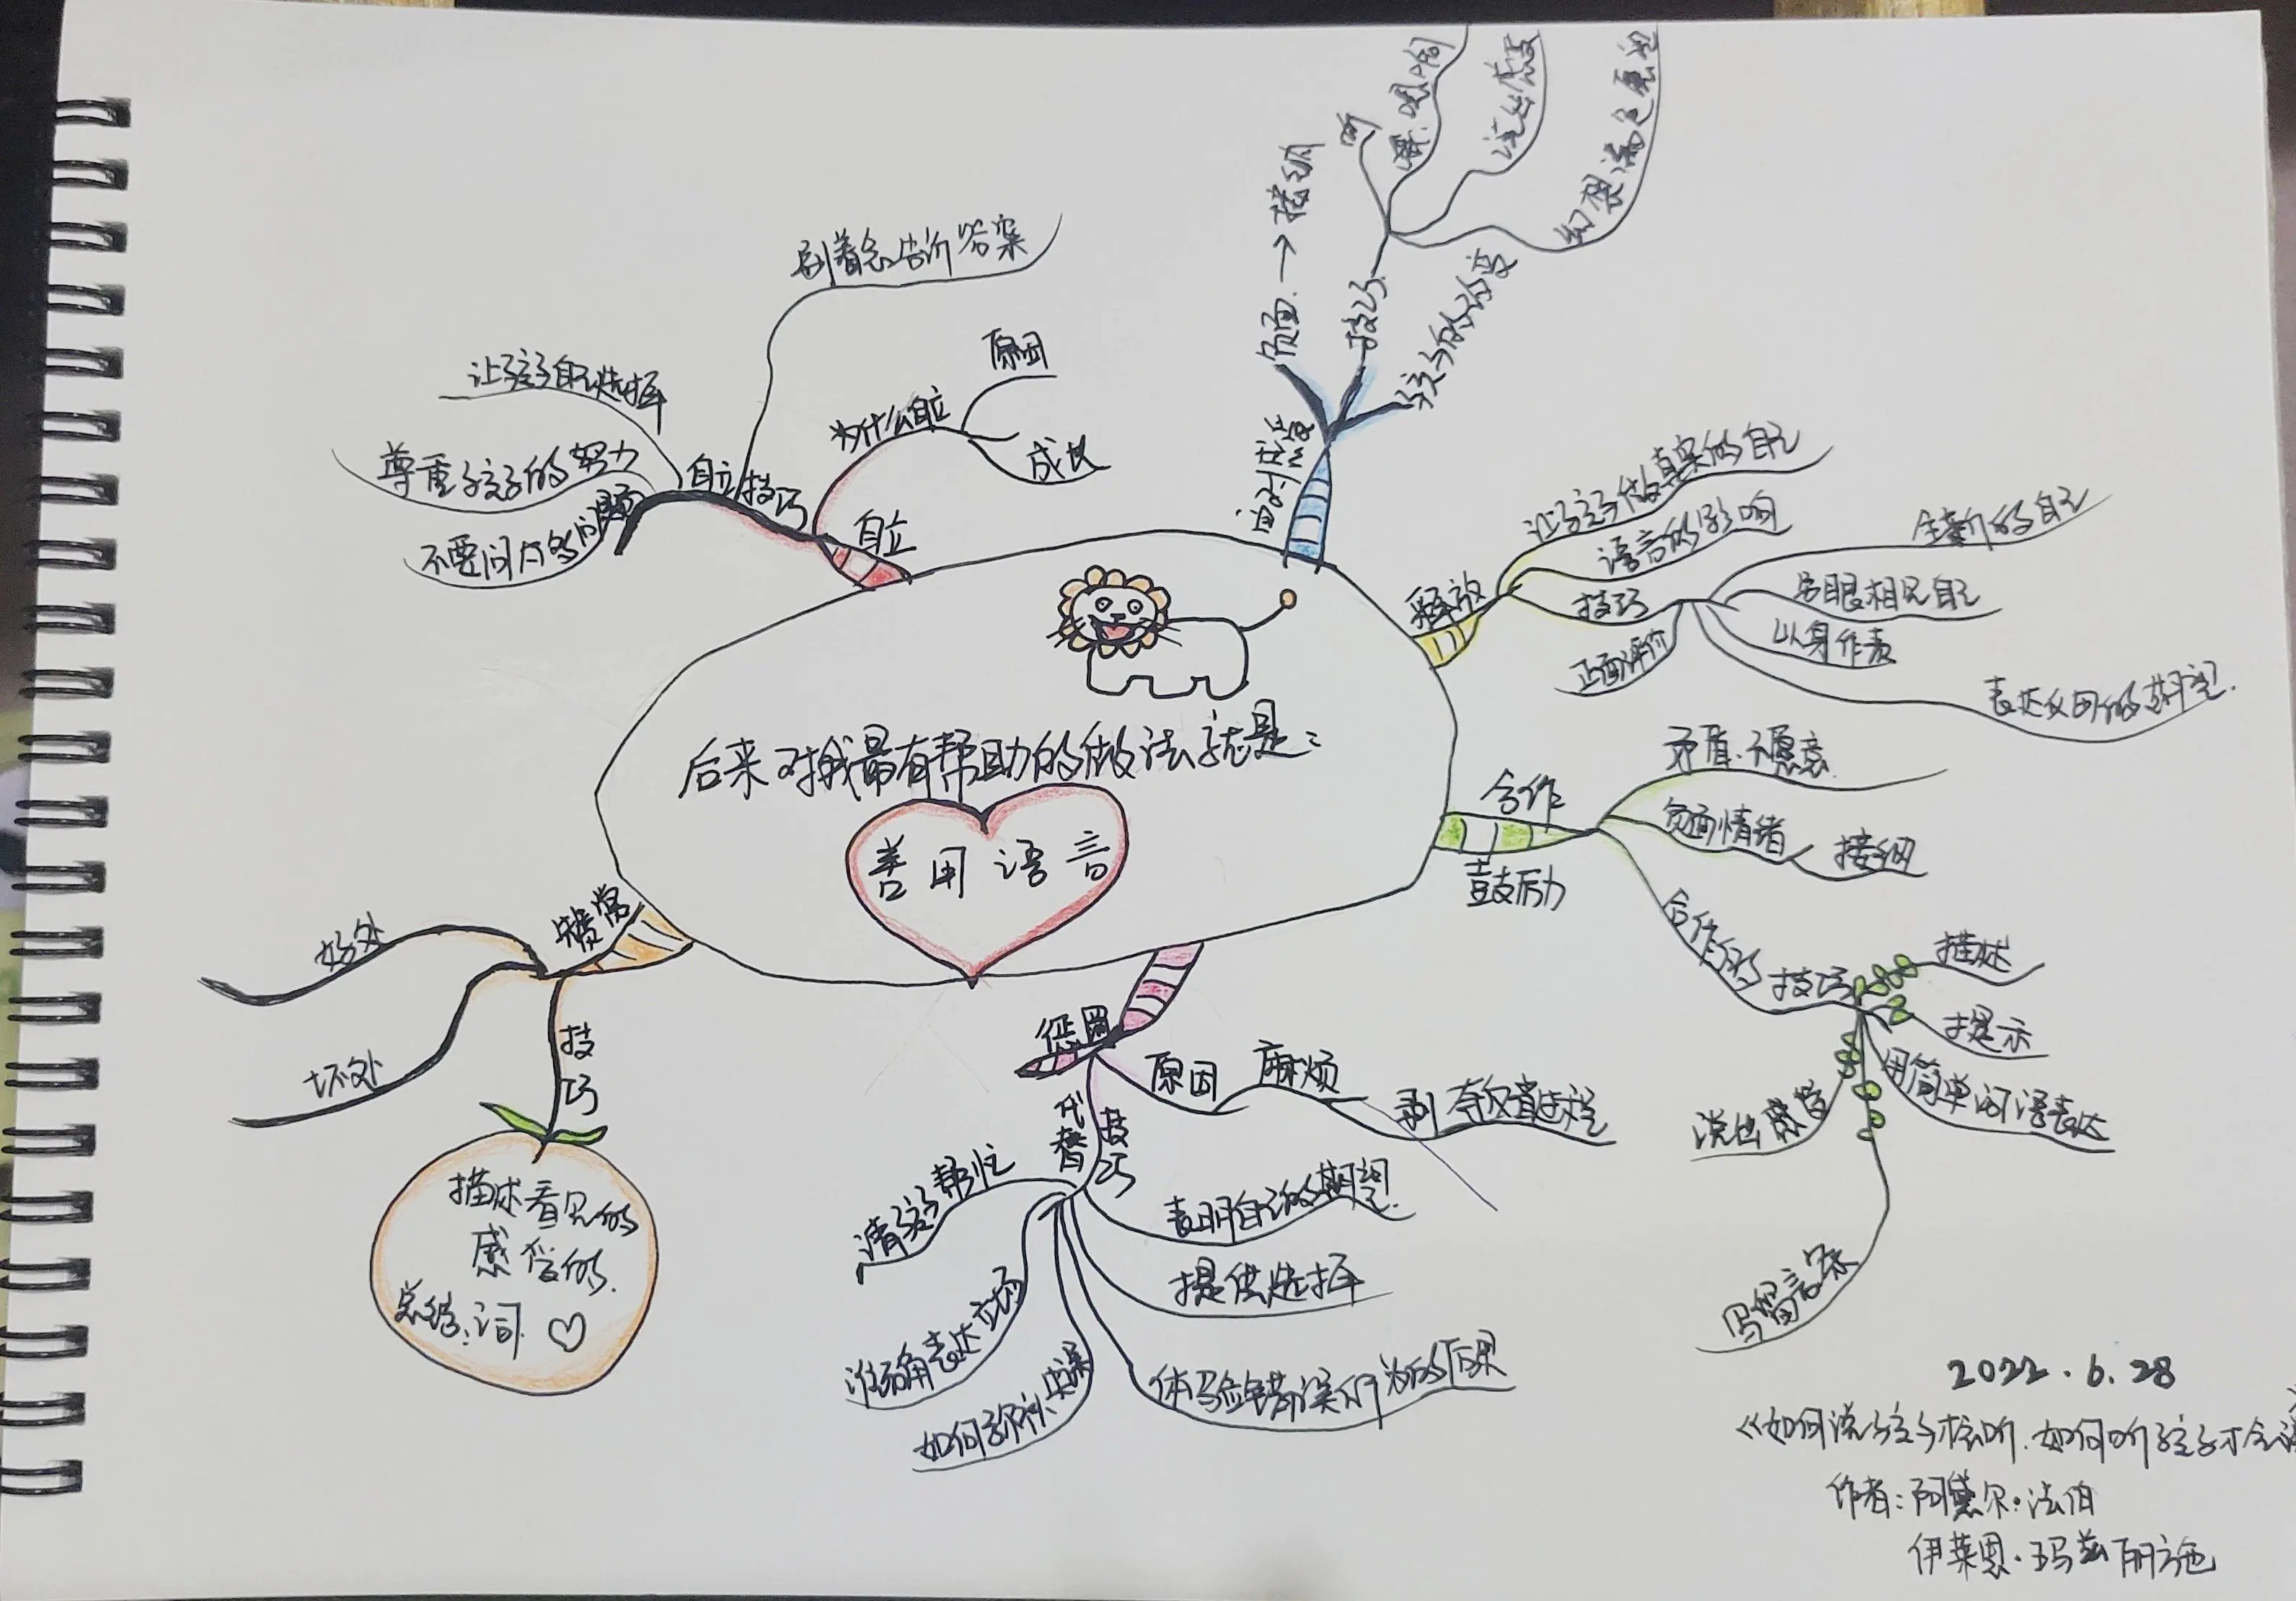 后来对我最有帮助的做法就是：
善用语言
面对感受
负面→接纳
技巧
听
嗯、哦、啊
说出感受
幻想满足愿望
孩子的改变
释放
让孩子做真实的自己
语言的影响
技巧
全新的自己
另眼相见自己
以身作责
表达父母的期望.
正面评价
合作
鼓励
矛盾.不愿意
负面情绪
接纳
合作的
技巧
描述
提示
用简单词语表达
说出感受
写留言条
惩罚
原因
麻烦
剥夺反省过程
代替
技巧
表明自己的期望.
提供选择
体验错误行为的后果
如何弥补失误
准确表达立场
请孩子帮忙
赞赏
好处
坏处
技
巧
描述看见的
感受的.
总结:词.
自立
为什么自立
原因
成长
自立技巧
别着急告诉答案
让孩子自己选择
尊重孩子的努力
不要问太多问题
2022.6.28
《如何说孩子才会听.如何听孩子才会说
作者:阿黛尔·法伯
伊莱恩·玛兹丽施